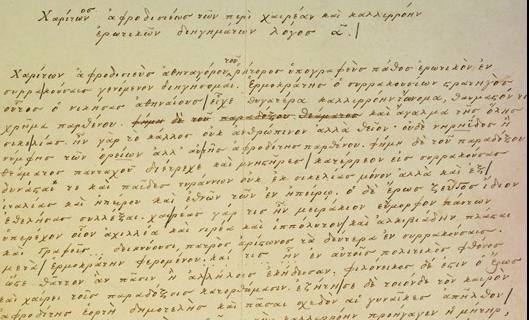 Χαρίτωνος ἀφροδισιέως τῶν περὶ χαιρέαν καὶ καλλιρρόην
ἐρωτικῶν διηγημάτων λόγος α̅./
Χαρίτων ἀφροδισιεὺς ἀθηναγόρου τοῦ ῥήτορος ὑπογραφεὺς πάθος ἐρωτικὸν ἐν
συρρακούσαις γενόμενον διηγήσομαι. Ἑρμοκράτης ὁ συρρακουσίων στρατηγὸς
οὗτος ὁ νικήσας ἀθηναίους/ εἶχε θυγατέρα καλλιρρόην τοὔνομα, θαυμαστόν τι
χρῆμα παρθένου. καὶ ἄγαλμα τῆς ὅλης
σικελίας. ἦν γὰρ τὸ κάλλος οὐκ ἀνθρώπινον ἀλλὰ θεῖον· οὐδὲ νηρηΐδος ἢ
νύμφης τῶν ὀρείων ἀλλ' αὐτῆς ἀφροδίτης παρθένου. φήμη δὲ τοῦ παραδόξου
θεάματος πανταχοῦ διέτρεχε καὶ μνηστῆρες/ κατέρρεον εἰς συρρακούσας
δυνάσται τε καὶ παῖδες τυράννων οὐκ ἐκ σικελίας μόνον ἀλλὰ καὶ ἐξ/
ἰταλίας καὶ ἠπείρου καὶ ἐθνῶν τῶν ἐν ἠπείρῳ. ὁ δὲ ἔρως ζεῦγος ἴδιον
ἐθέλησας συλλέξαι. χαιρέας γάρ τις ἦν μειράκιον εὔμορφον πάντων
ὑπερέχον οἷον ἀχιλλέα καὶ νιρέα καὶ ἱππόλυτον/ καὶ ἀλκιβιάδην πλάσται
καὶ γραφεῖς πατρὸς ἀρίστωνος τὰ δεύτερα ἐν συρρακούσαις
μετὰ/ ἑρμοκράτην φερομένου. καί τις ἦν ἐν αὐτοῖς πολιτικὸς φθόνος
ὥστε θᾶττον ἂν πᾶσιν ἢ ἀλλήλοις ἐκήδευσαν. φιλόνεικος δέ ἐστιν ὁ ἔρως
καὶ χαίρει τοῖς παραδόξοις κατορθώμασιν. ἐζήτησε δὲ τοιόνδε τὸν καιρόν
ἀφροδίτης ἑορτὴ δημοτελὴς καὶ πᾶσαι σχεδὸν αἱ γυναῖκες ἀπῆλθον/
καλλιρρόην προήγαγεν ἡ μήτηρ,